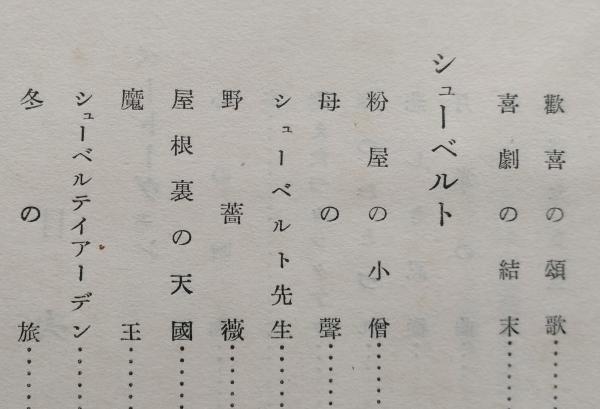 歡喜の頌歌……
喜劇の結末……
シューベルト
粉屋の小僧……
母の聲……
シューベルト先生……
野薔薇……
屋根裏の天國……
魔王……
シューベルテイアーデン……
冬の旅……